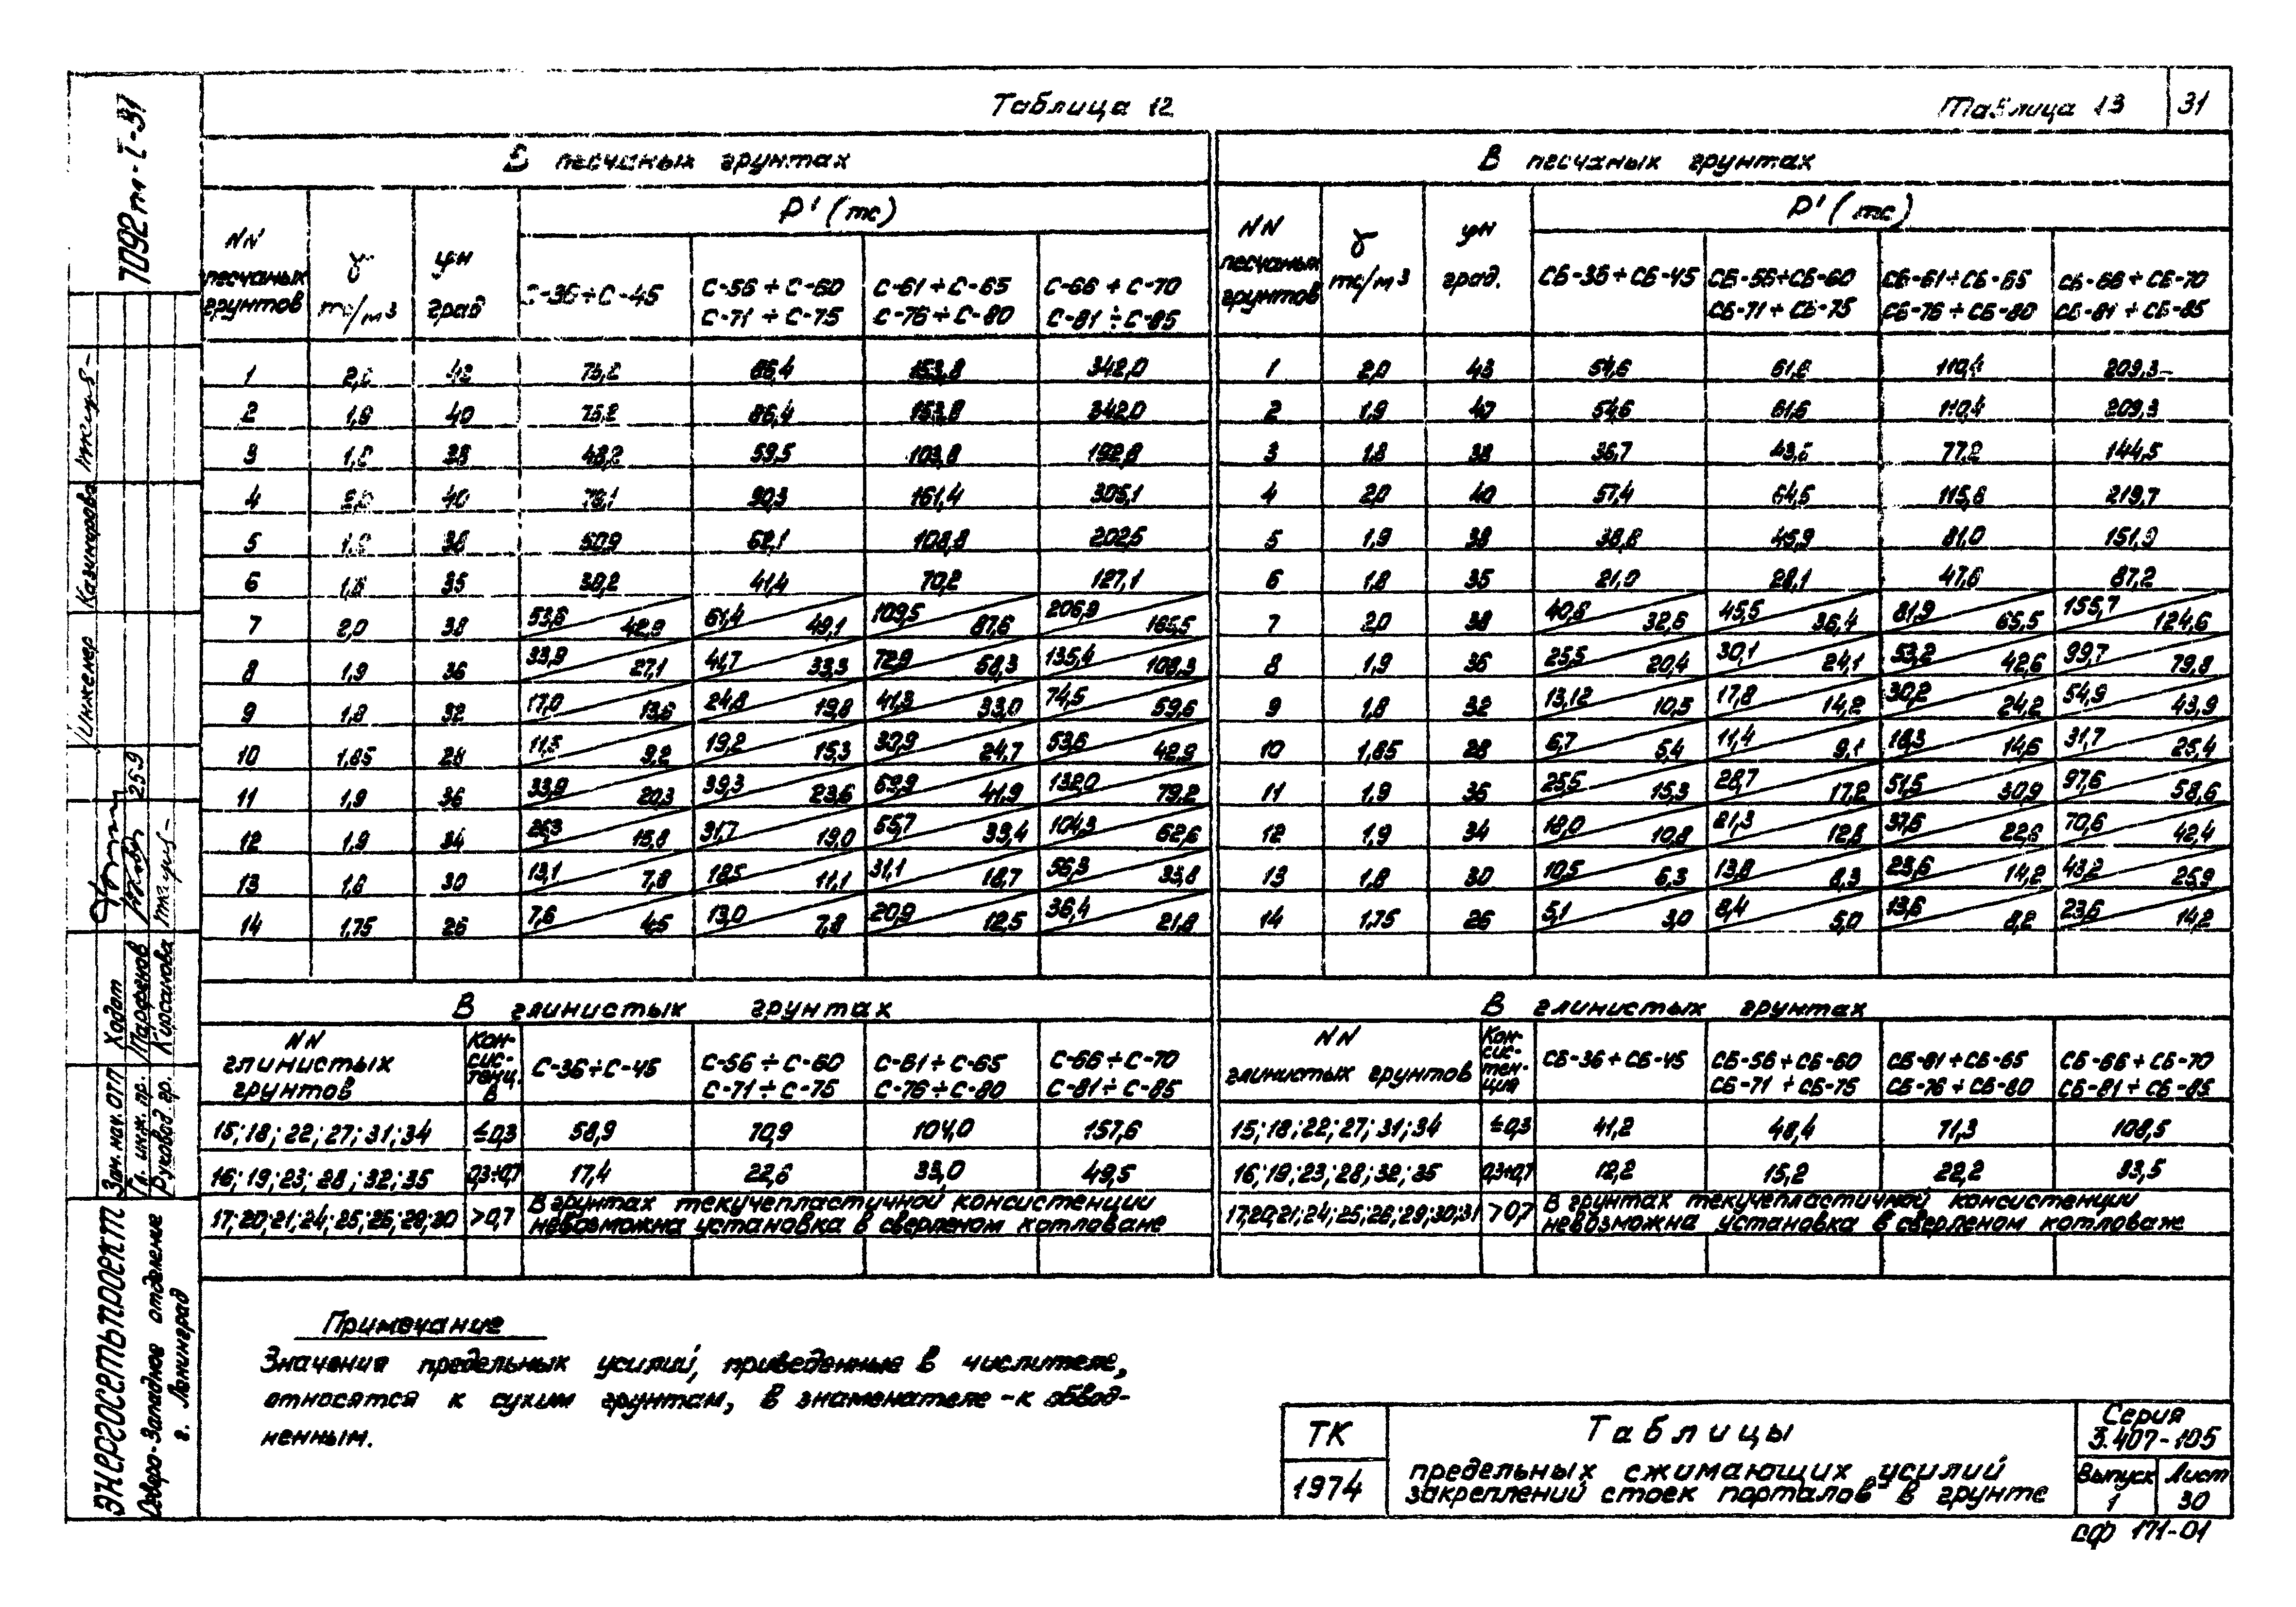 Таблица 12
Таблица 13
31
В песчаных грунтах
NN песчаных грунтов | γ тс/м3 | φн град | Р' (тс)
С-36÷С-45 | С-56÷С-60 С-71÷С-75 | С-61÷С-65 С-76÷С-80 | С-66÷С-70 С-81÷С-85
1 342,0
2 1,9 40 75,2 86,4 153,8 342,0
3 38 48,2 59,5 103,8 192,8
4 40 90,3 161,4 305,1
5 38 50,9 62,1 108,8 202,5
6 1,8 35 41,4 70,2 127,1
7 2,0 38 53,6/42,9 61,4/49,1 109,5/87,6 206,9/165,5
8 1,9 36 33,9/27,1 41,7/33,3 72,9/58,3 135,4/108,3
9 1,8 32 17,0/13,6 24,8/19,8 41,3/33,0 74,5/59,6
10 1,85 28 11,5/9,2 19,2/15,3 30,9/24,7 53,6/42,9
11 1,9 36 33,9/20,3 39,3/23,6 69,9/41,9 132,0/79,2
12 1,9 34 26,3/15,8 31,7/19,0 55,7/33,4 104,3/62,6
13 1,8 30 13,1/7,8 18,5/11,1 31,1/18,7 56,3/33,8
14 1,75 26 7,6/4,5 13,0/7,8 20,9/12,5 36,4/21,8
В глинистых грунтах
NN глинистых грунтов | Кон-сис-тенц. В | С-36÷С-45 | С-56÷С-60 С-71÷С-75 | С-61÷С-65 С-76÷С-80 | С-66÷С-70 С-81÷С-85
15; 18; 22; 27; 31; 34 ≤0,3 58,9 70,9 104,0 157,6
16; 19; 23; 28; 32; 35 0,3÷0,7 17,4 22,6 33,0 49,5
17; 20; 21; 24; 25; 26; 29; 30 >0,7 В грунтах текучепластичной консистенции
невозможна установка в сверленом котловане
В песчаных грунтах
NN песчаных грунтов | γ тс/м3 | φн град. | Р' (тс)
СБ-36÷СБ-45 | СБ-56÷СБ-60 СБ-71÷СБ-75 | СБ-61÷СБ-65 СБ-76÷СБ-80 | СБ-66÷СБ-70 СБ-81÷СБ-85
1 2,0 43 54,6 61,6 110,4 209,3
2 1,9 40 54,6 61,6 110,4 209,3
3 1,8 38 36,7 77,2 144,5
4 2,0 40 57,4 64,5 115,8 219,7
5 1,9 38 38,8 45,9 81,0 151,9
6 1,8 35 21,0 28,1 47,6 87,2
7 2,0 38 40,8/32,6 45,5/36,4 81,9/65,5 155,7/124,6
8 1,9 36 25,5/20,4 30,1/24,1 53,2/42,6 99,7/79,8
9 1,8 32 13,12/10,5 17,8/14,2 30,2/24,2 54,9/43,9
10 1,85 28 6,7/5,4 11,4/9,1 18,3/14,6 31,7/25,4
11 1,9 36 25,5/15,3 28,7/17,2 51,5/30,9 97,6/58,6
12 1,9 34 18,0/10,8 21,3/12,8 37,6/22,6 70,6/42,4
13 1,8 30 10,5/6,3 13,8/8,3 23,6/14,2 43,2/25,9
14 1,75 26 5,1/3,0 8,4/5,0 13,6/8,2 23,6/14,2
В глинистых грунтах
NN глинистых грунтов | Кон-сис-тен-ция | СБ-36÷СБ-45 | СБ-56÷СБ-60 СБ-71÷СБ-75 | СБ-61÷СБ-65 СБ-76÷СБ-80 | СБ-66÷СБ-70 СБ-81÷СБ-85
15; 18; 22; 27; 31; 34 ≤0,3 41,2 48,4 71,3 108,5
16; 19; 23; 28; 32; 35 0,3÷0,7 12,2 15,2 22,2 33,5
17; 20; 21; 24; 25; 26; 29; 30; 31 >0,7 В грунтах текучепластичной консистенции
невозможна установка в сверленом котловане
Примечание
Значения предельных усилий, приведенные в числителе,
относятся к сухим грунтам, в знаменателе - к обвод-
ненным.
ТК
1974
Таблицы
предельных сжимающих усилий
закреплений стоек порталов в грунте
Серия
3.407-105
Выпуск
1
Лист
30
сф 171-01
7092тм-I-31
Инженер Казимирова
25.9
Зам. нач. ОТП Ходот
Гл. инж. пр. Парфенов
Руковод. гр. Кирсанова
ЭНЕРГОСЕТЬПРОЕКТ
Северо-Западное отделение
г. Ленинград